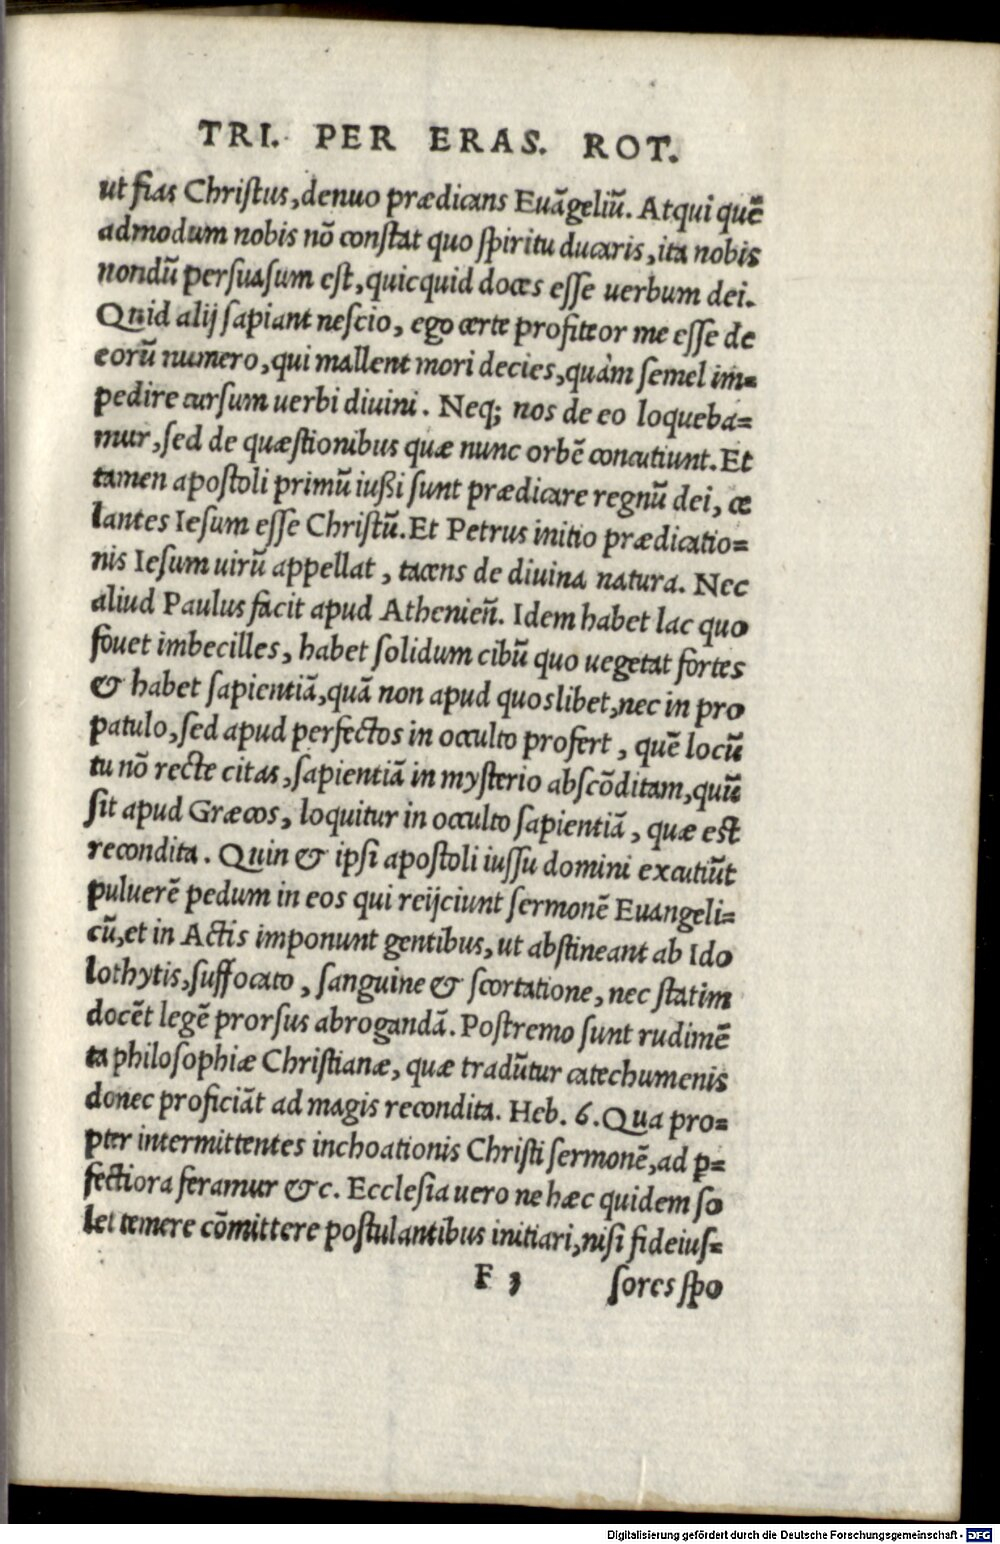 TRI. PER ERAS. ROT.
ut fias Chriſtus, denuo prædicans Euãgeliũ. Atqui quẽ
admodum nobis nõ conſtat quo ſpiritu ducaris, ita nobis
nondũ perſuaſum eſt, quicquid doces eſſe uerbum dei.
Quid alij ſapiant neſcio, ego certe profiteor me eſſe de
eorũ numero, qui mallent mori decies, quàm ſemel im=
pedire curſum uerbi diuini. Neq; nos de eo loqueba=
mur, ſed de quæſtionibus quæ nunc orbẽ concutiunt. Et
tamen apoſtoli primũ iußi ſunt prædicare regnũ dei, ce
lantes Ieſum eſſe Chriſtũ. Et Petrus initio prædicatio=
nis Ieſum uirũ appellat, tacens de diuina natura. Nec
aliud Paulus facit apud Athenieñ. Idem habet lac quo
fouet imbecilles, habet ſolidum cibũ quo uegetat fortes
& habet ſapientiã, quã non apud quoslibet, nec in pro
patulo, ſed apud perfectos in occulto profert, quẽ locũ
tu nõ recte citas, ſapientiã in myſterio abſcõditam, quũ
ſit apud Græcos, loquitur in occulto ſapientiã, quæ eſt
recondita. Quin & ipſi apoſtoli iuſſu domini excutiũt
puluerẽ pedum in eos qui reijciunt ſermonẽ Euangeli=
cũ, et in Actis imponunt gentibus, ut abſtineant ab Ido
lothytis, ſuffocato, ſanguine & ſcortatione, nec ſtatim
docẽt legẽ prorſus abrogandã. Poſtremo ſunt rudimẽ
ta philoſophiæ Chriſtianæ, quæ tradũtur catechumenis
donec proficiãt ad magis recondita. Heb. 6. Qua pro=
pter intermittentes inchoationis Chriſti ſermonẽ, ad ꝑ=
fectiora feramur &c. Eccleſia uero ne hæc quidem ſo
let temere cõmittere poſtulantibus initiari, niſi fideiuſ=
F 3 ſores ſpo
Digitalisierung gefördert durch die Deutsche Forschungsgemeinschaft - DFG